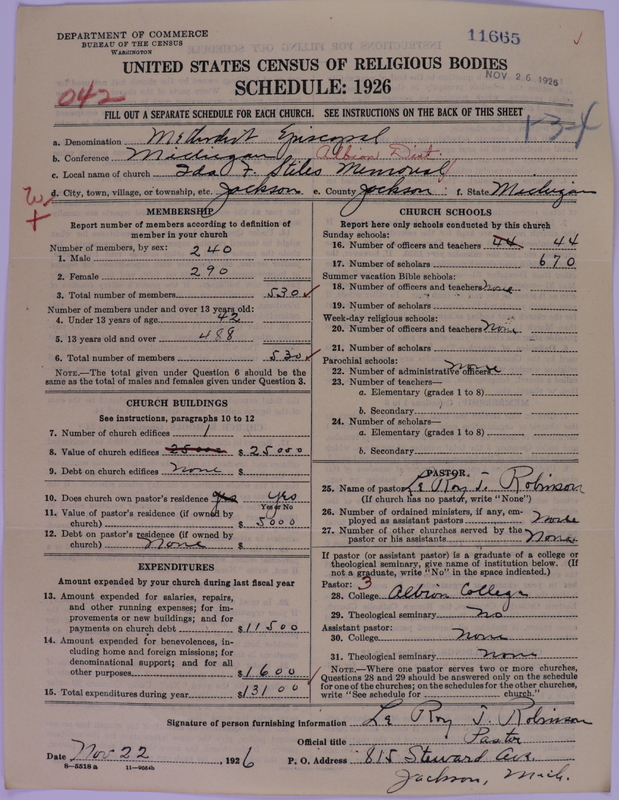 DEPARTMENT OF COMMERCE
BUREAU OF THE CENSUS
WASHINGTON
11665
UNITED STATES CENSUS OF RELIGIOUS BODIES
NOV 26 1926
SCHEDULE: 1926
042
FILL OUT A SEPARATE SCHEDULE FOR EACH CHURCH. SEE INSTRUCTIONS ON THE BACK OF THIS SHEET
1-3-4
a. Denomination Methodist Episcopal
b. Conference Michigan Albion Dist.
c. Local name of church Ida F. Stiles Memorial
d. City, town, village, or township, etc. Jackson e. County Jackson f. State Michigan
MEMBERSHIP
Report number of members according to definition of
member in your church
Number of members, by sex:
1. Male 240
2. Female 290
3. Total number of members 530
Number of members under and over 13 years old:
4. Under 13 years of age 42
5. 13 years old and over 488
6. Total number of members 530
NOTE.—The total given under Question 6 should be
same as the total of males and females given under Question 3.
CHURCH BUILDINGS
See instructions, paragraphs 10 to 12
7. Number of church edifices 1
8. Value of church edifices 25000 $25000
9. Debt on church edifices None $
10. Does church own pastor's residence Yes Yes
Yes or No
11. Value of pastor's residence (if owned by
church) $5000
12. Debt on pastor's residence (if owned by
church) None $
EXPENDITURES
Amount expended by your church during last fiscal year
13. Amount expended for salaries, repairs,
and other running expenses; for im-
provements or new buildings; and for
payments on church debt $11500
14. Amount expended for benevolences, in-
cluding home and foreign missions; for
denominational support; and for all
other purposes $1600
15. Total expenditures during year $13100
CHURCH SCHOOLS
Report here only schools conducted by this church
Sunday schools:
16. Number of officers and teachers 44 44
17. Number of scholars 670
Summer vacation Bible schools:
18. Number of officers and teachers None
19. Number of scholars
Week-day religious schools:
20. Number of officers and teachers None
21. Number of scholars
Parochial schools:
22. Number of administrative officers None
23. Number of teachers—
a. Elementary (grades 1 to 8)
b. Secondary
24. Number of scholars—
a. Elementary (grades 1 to 8)
b. Secondary
PASTOR
25. Name of pastor Le Roy T. Robinson
(If church has no pastor, write "None")
26. Number of ordained ministers, if any, em-
ployed as assistant pastors None
27. Number of other churches served by the
pastor or his assistants None
If pastor (or assistant pastor) is a graduate of a college or
theological seminary, give name of institution below. (If
not a graduate, write "No" in the space indicated.)
Pastor: 3
28. College Albion College
29. Theological seminary No
Assistant pastor:
30. College None
31. Theological seminary None
NOTE.—Where one pastor serves two or more churches,
Questions 28 and 29 should be answered only on the schedule
for one of the churches; on the schedules for the other churches,
write "See schedule for church."
Signature of person furnishing information Le Roy T. Robinson
Official title Pastor
Date Nov 22, 1926 P. O. Address 815 Steward Ave.
8—5518a
Jackson, Mich.